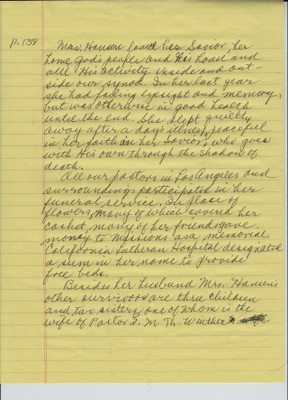 p. 139
Mrs. Hansen loved her Savior, her
home, God's people and His house and
all His activity inside and out-
side our synod. In her last year
she had failing eyesight and memory,
but was otherwise in good health
until the end. She slept quietly
away after a day's illness, peaceful
in her faith in her Savior, who goes
with His own through the shadow of
death.
All our pastors in Los Angeles and
surroundings participated in her
funeral service. In place of
flowers, many of which covered her
casket, many of her friends gave
money to Missions as a memorial.
California Lutheran Hospital designated
a sum in her name to provide
free beds.
Besides her husband Mrs. Hansen's
other survivors are three children
and two sisters, one of whom is the
wife of Pastor I. M. Th. Winther